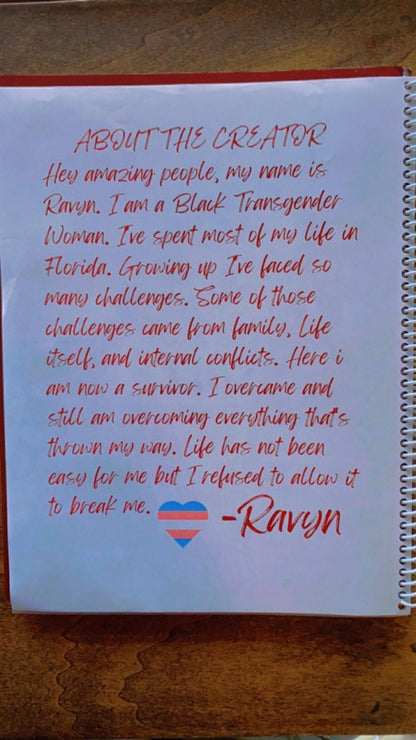 ABOUT THE CREATOR
Hey amazing people, my name is
Ravyn. I am a Black Transgender
Woman. I've spent most of my life in
Florida. Growing up I've faced so
many challenges. Some of those
challenges came from family, Life
itself, and internal conflicts. Here i
am now a survivor. I overcame and
still am overcoming everything that's
thrown my way. Life has not been
easy for me but I refused to allow it
to break me.
-Ravyn